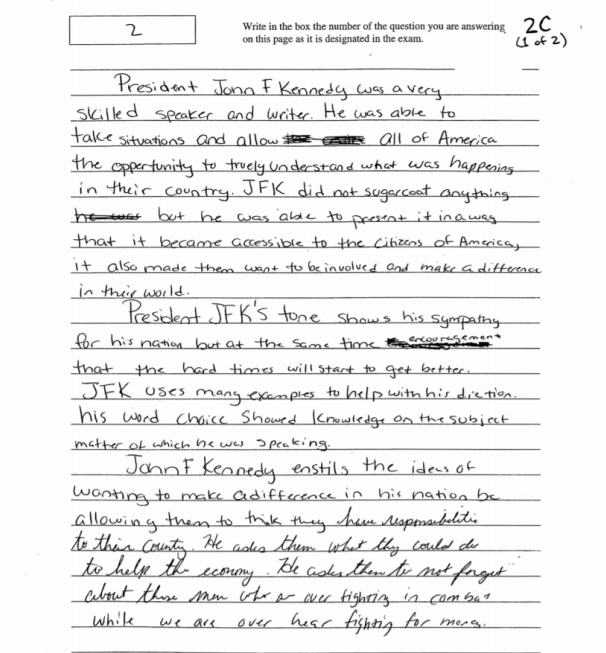 2
Write in the box the number of the question you are answering
on this page as it is designated in the exam.
2C
(1 of 2)
President John F Kennedy was a very
skilled speaker and writer. He was able to
take situations and allow all of America
the opportunity to truely understand what was happening
in their country. JFK did not sugarcoat anything
he was but he was able to present it in a way
that it became accessible to the citizens of America,
it also made them want to be involved and make a difference
in their world.
President JFK's tone shows his sympathy
for his nation but at the same time encouragement
that the hard times will start to get better.
JFK uses many examples to help with his diction.
his word choice showed knowledge on the subject
matter of which he was speaking.
John F Kennedy enstils the ideas of
wanting to make a difference in his nation be
allowing them to think they have responsibilitie
to their County. He asks them what they could do
to help the economy. He askes them to not forget
about those men who ar over fighting in combat
while we are over hear fighting for money.